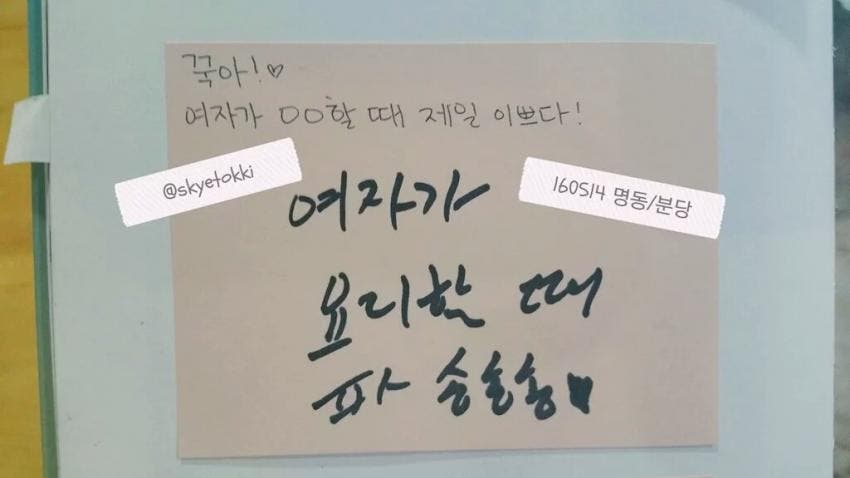 꾹아!♡
여자가 OO할 때 제일 이쁘다!
@skyetokki
160514 명동/분당
여자가
요리할 때
파 송송송♥